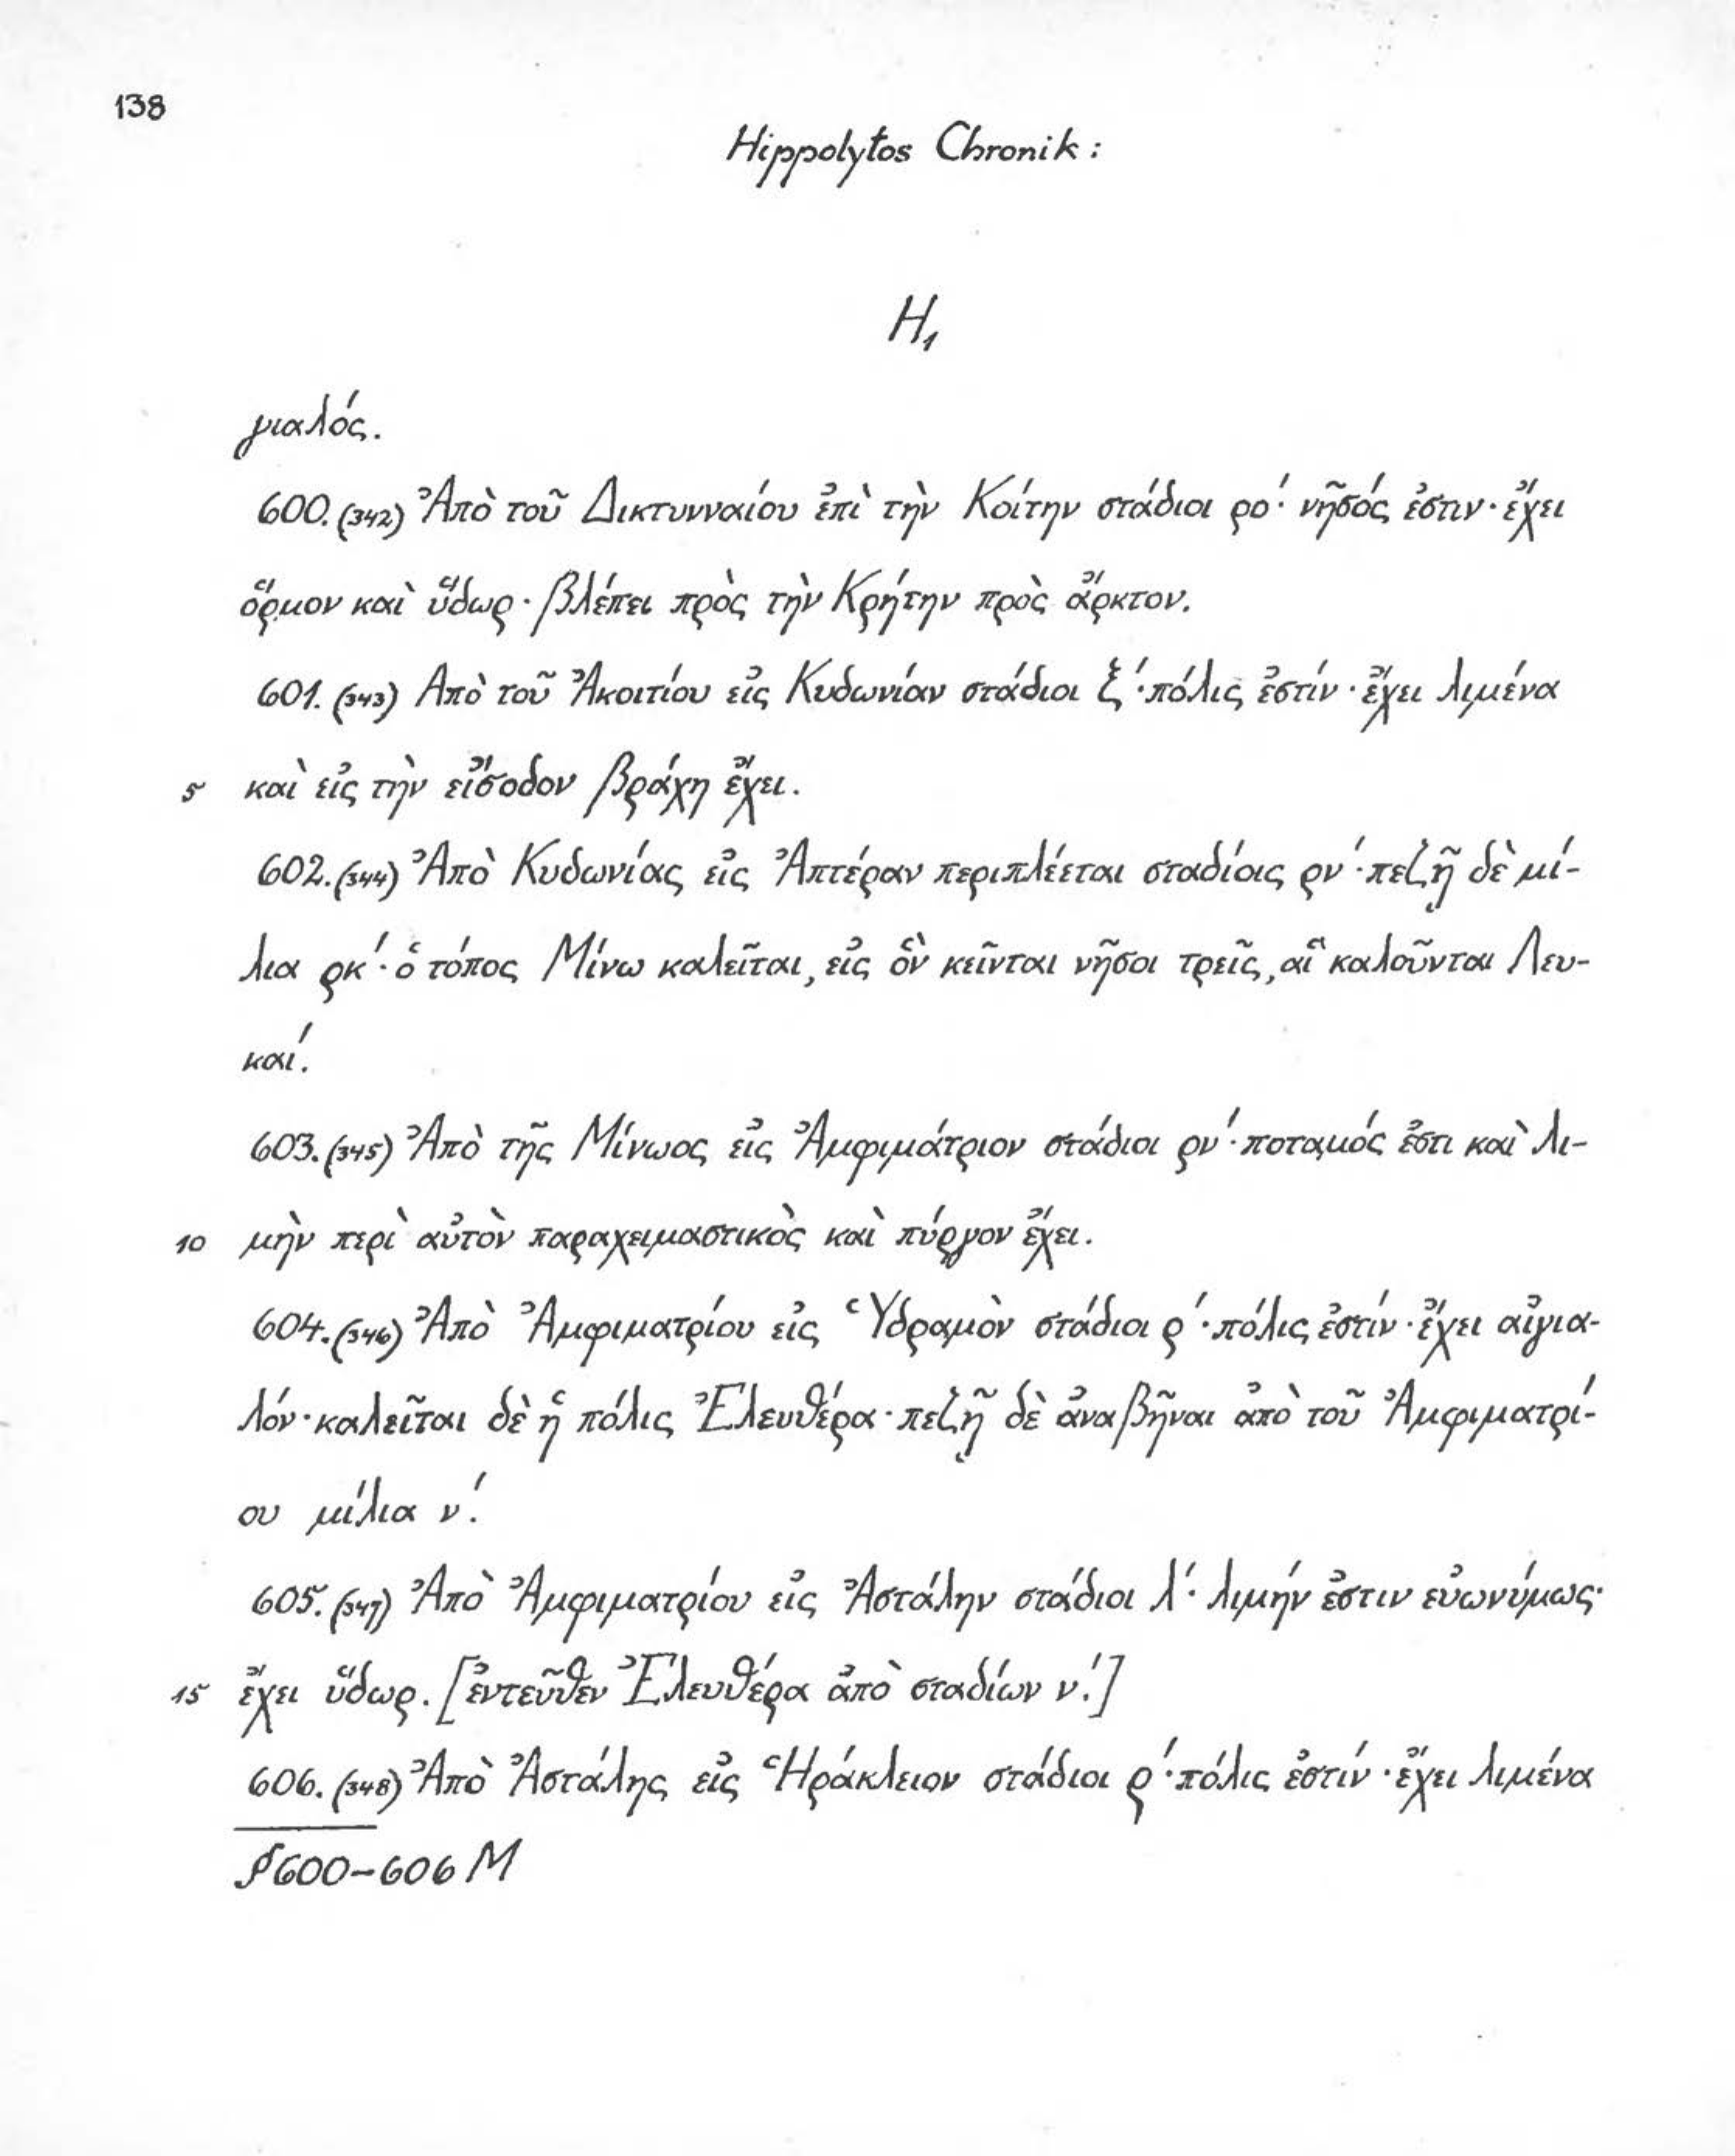 138
Hippolytos Chronik :
H₁
γιαλός.
600. (342) Ἀπὸ τοῦ Δικτυνναίου ἐπὶ τὴν Κοίτην στάδιοι ρο΄· νῆσός ἐστιν· ἔχει
ὅρμον καὶ ὕδωρ· βλέπει πρὸς τὴν Κρήτην πρὸς ἄρκτον.
601. (343) Ἀπὸ τοῦ Ἀκοιτίου εἰς Κυδωνίαν στάδιοι ξ΄· πόλις ἐστίν· ἔχει λιμένα
5 καὶ εἰς τὴν εἴσοδον βράχη ἔχει.
602. (344) Ἀπὸ Κυδωνίας εἰς Ἀπτέραν περιπλέεται σταδίοις ρν΄· πεζῇ δὲ μί-
λια ρκ΄· ὁ τόπος Μίνω καλεῖται, εἰς ὃν κεῖνται νῆσοι τρεῖς, αἳ καλοῦνται Λευ-
καί.
603. (345) Ἀπὸ τῆς Μίνωος εἰς Ἀμφιμάτριον στάδιοι ρν΄· ποταμός ἐστι καὶ λι-
10 μὴν περὶ αὐτὸν παραχειμαστικὸς καὶ πύργον ἔχει.
604. (346) Ἀπὸ Ἀμφιματρίου εἰς Ὑδραμὸν στάδιοι ρ΄· πόλις ἐστίν· ἔχει αἰγια-
λόν· καλεῖται δὲ ἡ πόλις Ἐλευθέρα· πεζῇ δὲ ἀναβῆναι ἀπὸ τοῦ Ἀμφιματρί-
ου μίλια ν΄.
605. (347) Ἀπὸ Ἀμφιματρίου εἰς Ἀστάλην στάδιοι λ΄· λιμήν ἐστιν εὐωνύμως·
15 ἔχει ὕδωρ. [ἐντεῦθεν Ἐλευθέρα ἀπὸ σταδίων ν΄.]
606. (348) Ἀπὸ Ἀστάλης εἰς Ἡράκλειον στάδιοι ρ΄· πόλις ἐστίν· ἔχει λιμένα
§ 600-606 M